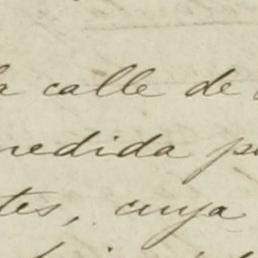 la calle de
medida
tes, cuya